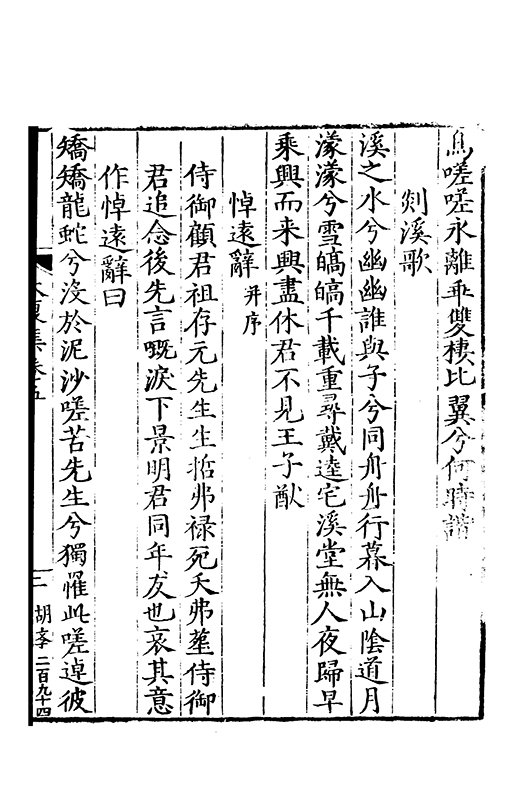 嗟嗟永離乖雙棲比翼兮何時諧
剡溪歌
溪之水兮幽幽誰與子兮同舟舟行暮入山陰道月
濛濛兮雪皜皜千載重尋戴逵宅溪堂無人夜歸早
乘興而来興盡休君不見王子猷
悼遠辭并序
侍御顧君祖存元先生生拓弗禄死夭弗塟侍御
君追念後先言嘅淚下景明君同年友也哀其意
作悼遠辭曰
矯矯龍蛇兮沒於泥沙嗟苦先生兮獨罹此嗟逴彼
大復集卷五
二
胡李二百九十四